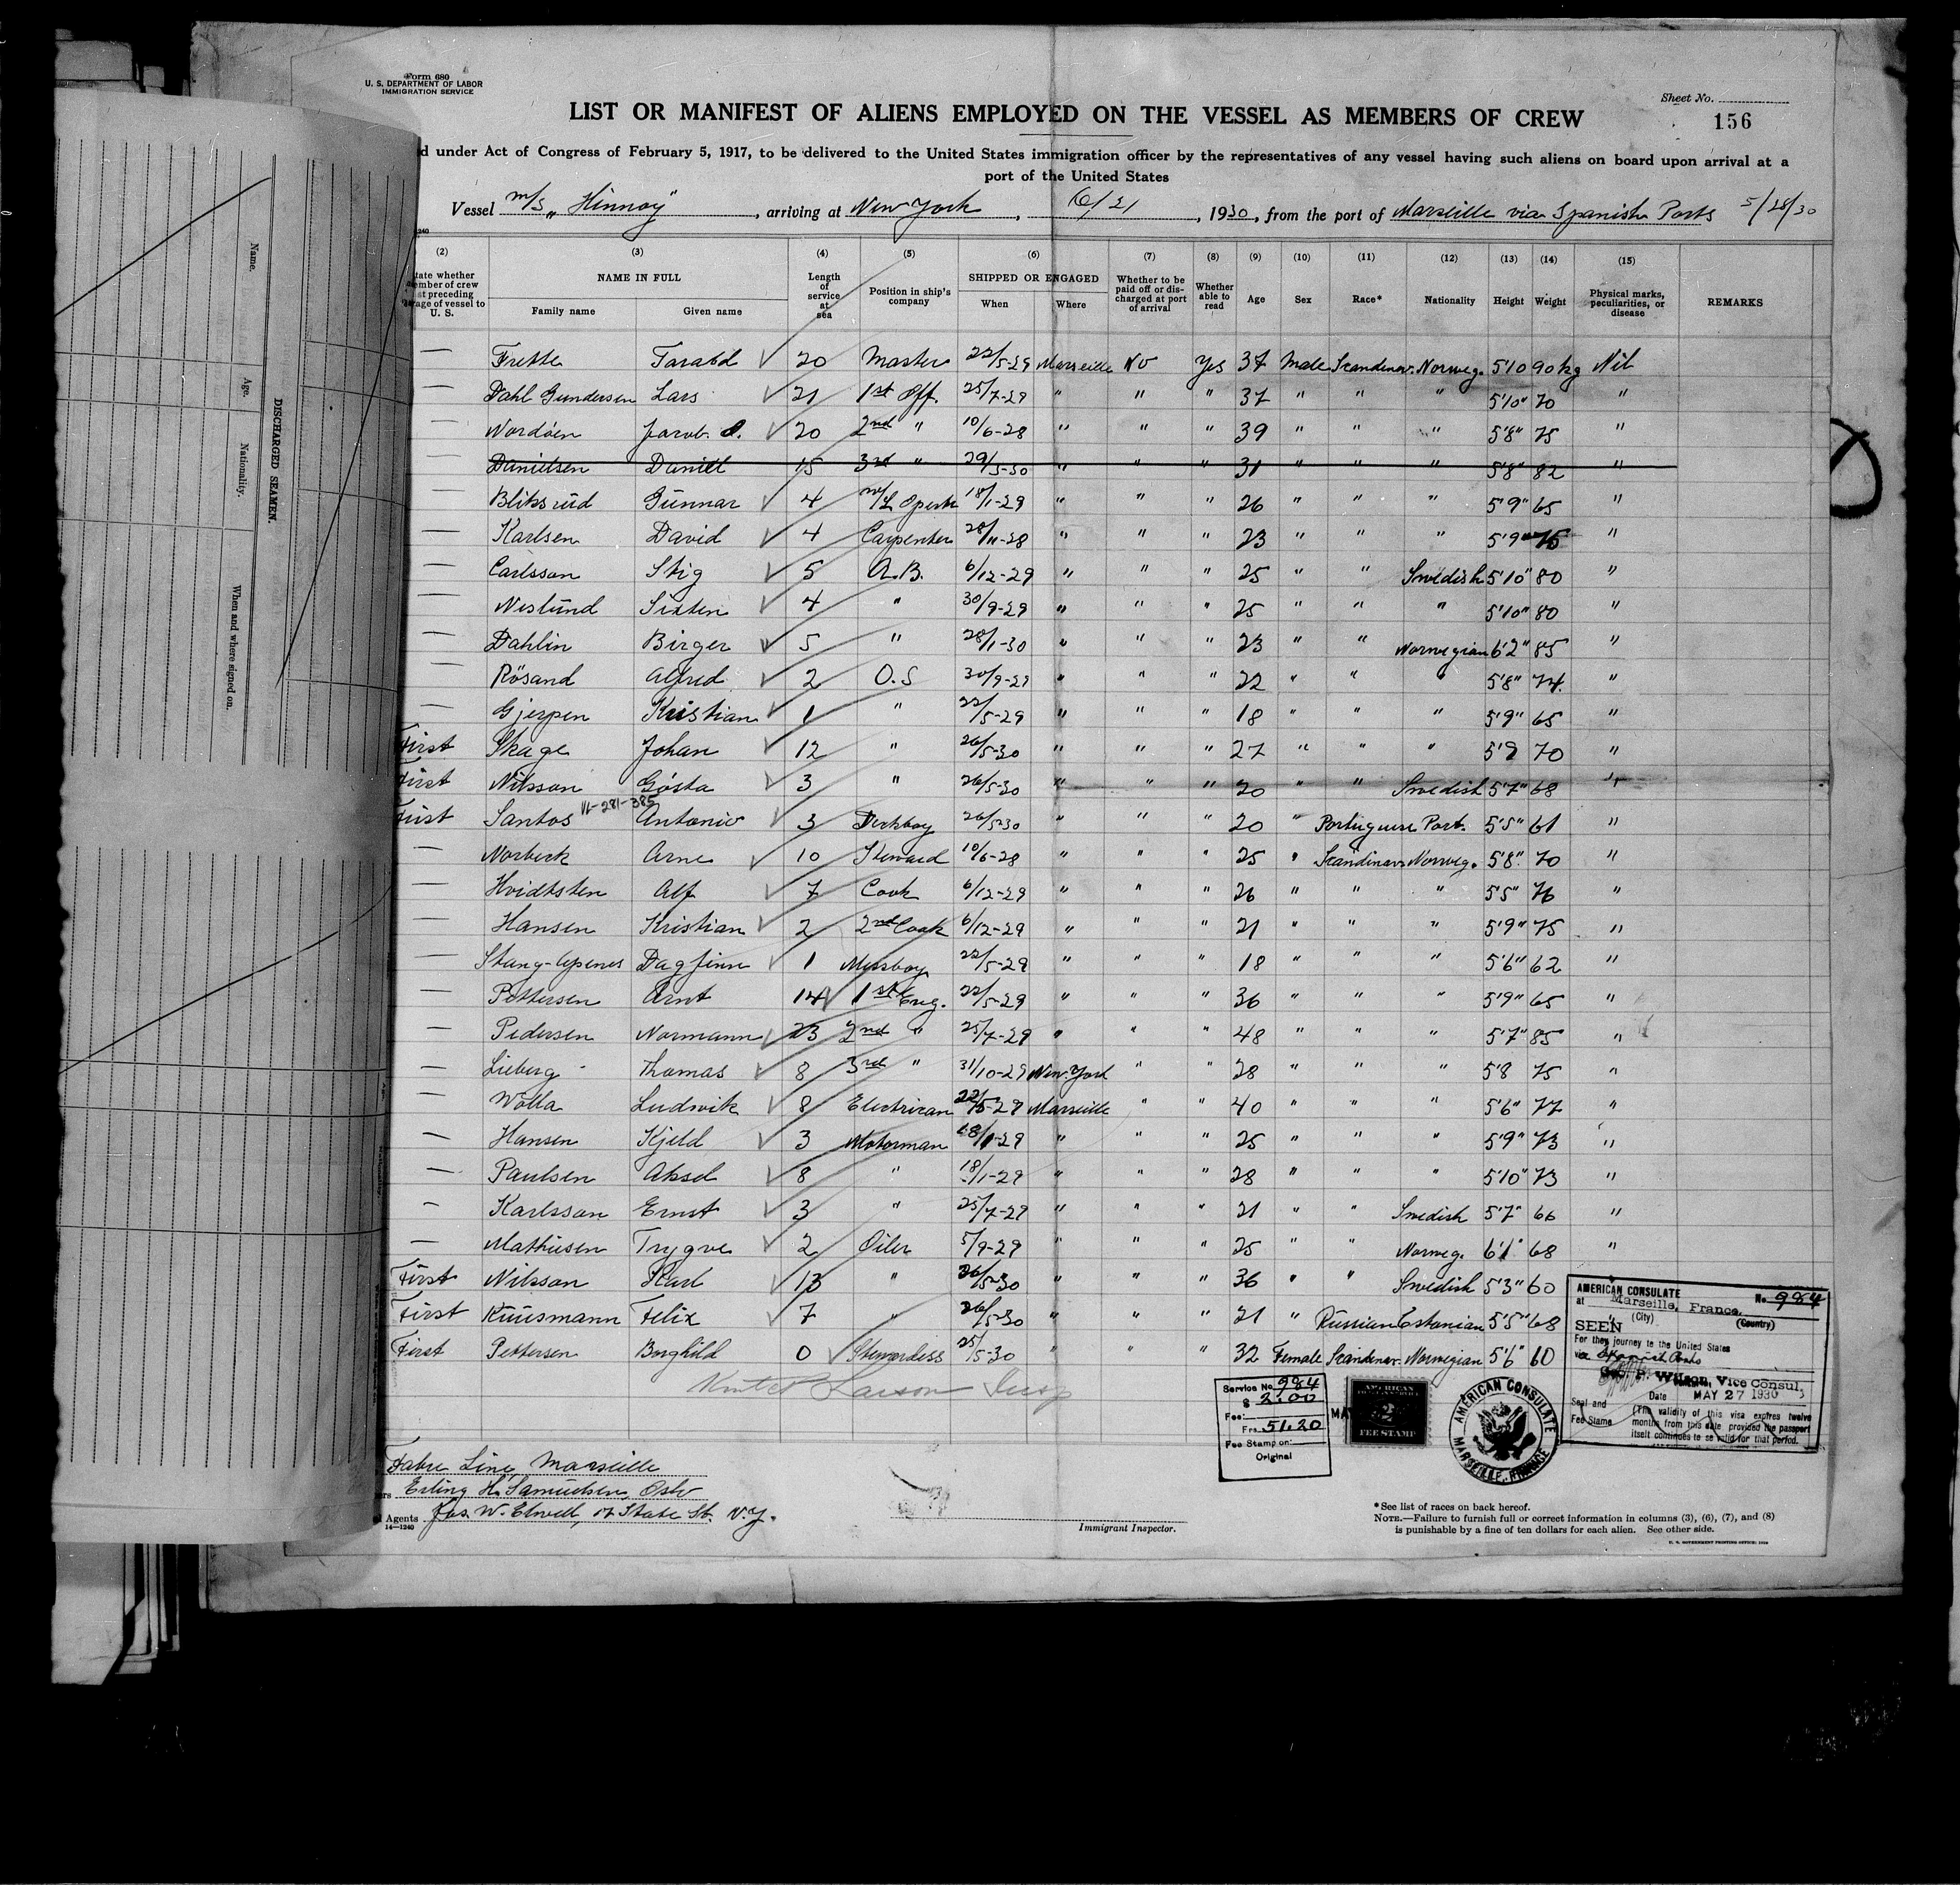 Form 680
U. S. DEPARTMENT OF LABOR
IMMIGRATION SERVICE
Sheet No.
LIST OR MANIFEST OF ALIENS EMPLOYED ON THE VESSEL AS MEMBERS OF CREW
156
d under Act of Congress of February 5, 1917, to be delivered to the United States immigration officer by the representatives of any vessel having such aliens on board upon arrival at a
port of the United States
Vessel m/s „Hinnoy", arriving at New York, 6/21, 1930, from the port of Marseille via Spanish Ports 5/28/30
(2) (3) (4) (5) (6) (7) (8) (9) (10) (11) (12) (13) (14) (15)
tate whether member of crew st preceding age of vessel to U. S. NAME IN FULL Family name Given name Length of service at sea Position in ship's company SHIPPED OR ENGAGED When Where Whether to be paid off or discharged at port of arrival Whether able to read Age Sex Race* Nationality Height Weight Physical marks, peculiarities, or disease REMARKS
— Frette 20 Master 22/5-29 Marseille No Yes 37 Male Scandinav. Norweg. 5'10 90 kg Nil
— Dahl Gundersen Lars 21 1st Off. 25/7-29 " " " 37 " " " 5'10" 70 "
— Nordöen Jacob 20 2nd " 10/6-28 " " " 39 " " " 5'8" 75 "
— Danielsen Daniel 15 3rd " 29/5-30 " " " 31 " " " 5'8" 82 "
— Bliksrud Gunnar 4 18/1-29 " " " 26 " " " 5'9" 65 "
— Karlsen David 4 Carpenter 28/11-28 " " " 23 " " " 5'9" 75 "
— Carlsson Stig 5 A.B. 6/12-29 " " " 25 " " Swedish 5'10" 80 "
— Neslund Sixten 4 " 30/9-29 " " " 25 " " " 5'10" 80 "
— Dahlin Birger 5 " 28/1-30 " " " 23 " " Norwegian 6'2" 85 "
— Rösand Alfred 2 O.S 30/9-29 " " " 22 " " " 5'8" 74. "
— Gjerpen Kristian 1 " 22/5-29 " " " 18 " " " 5'9" 65 "
First Skage Johan 12 " 26/5-30 " " " 27 " " " 5'9 70 "
First Nilsson Gösta 3 " 26/5-30 " " " 20 " " Swedish 5'7" 68 "
First Santos Antonio 3 Deckboy 26/5-30 " " " 20 " Portuguese Port. 5'5" 61 "
— Norbeck Arne 10 Steward 10/6-28 " " " 25 " Scandinav. Norweg. 5'8" 70 "
— Hvidtsten Alf 7 Cook 6/12-29 " " " 26 " " " 5'5" 76 "
— Hansen Kristian 2 2nd Cook 6/12-29 " " " 21 " " " 5'9" 75 "
— Dagfinn 1 Messboy 22/5-29 " " " 18 " " " 5'6" 62 "
— Pettersen Arnt 14 1st Eng. 22/5-29 " " " 36 " " " 5'9" 65 "
— Pedersen Normann 23 2nd " 25/7-29 " " " 48 " " " 5'7" 85 "
— Lieberg Thomas 8 3rd " 31/10-29 New York " " 28 " " " 5'8 75 "
— Wolla Ludwik 8 Electrican 22/5-29 Marseille " " 40 " " " 5'6" 77 "
— Hansen Kjeld 3 Motorman 18/1-29 " " " 25 " " " 5'9" 73 "
— Paulsen Aksel 8 " 18/1-29 " " " 28 " " " 5'10" 73 "
— Karlsson Ernst 3 " 25/7-29 " " " 21 " " Swedish 5'7" 66 "
— Mathiesen Trygve 2 Oiler 5/9-29 " " " 25 " " Norweg. 6'1" 68 "
First Nilsson Karl 13 " 26/5-30 " " " 36 " " Swedish 5'3" 60
First Kuusmann Felix 7 " 26/5-30 " " " 21 " Russian Estonian 5'5" 68
First Pettersen Borghild 0 Stewardess 25/5-30 " " " 32 Female Scandinav. Norwegian 5'6" 60
Larson Insp
AMERICAN CONSULATE No. 984
at Marseille, France.
(City) (Country)
SEEN
For they journey to the United States
via Spanish Ports
Geo. P. Wilson, Vice Consul,
Date MAY 27 1930
Seal and
Fee Stamp
(The validity of this visa expires twelve
months from this date provided the passport
itself continues to be valid for that period.
Service No. 984
$ 2.00
Fee:
Frs. 51.20
Fee Stamp on:
Original
AMERICAN
2
FEE STAMP
AMERICAN CONSULATE
MARSEILLE, FRANCE
Fabre Line, Marseille
Erling H. Samuelsen, Oslo
Agents Jas. W. Elwell, 17 State St. N.Y.
14—1240
Immigrant Inspector.
*See list of races on back hereof.
NOTE.—Failure to furnish full or correct information in columns (3), (6), (7), and (8)
is punishable by a fine of ten dollars for each alien. See other side.
DISCHARGED SEAMEN.
Name.
Age.
Nationality.
When and where signed on.